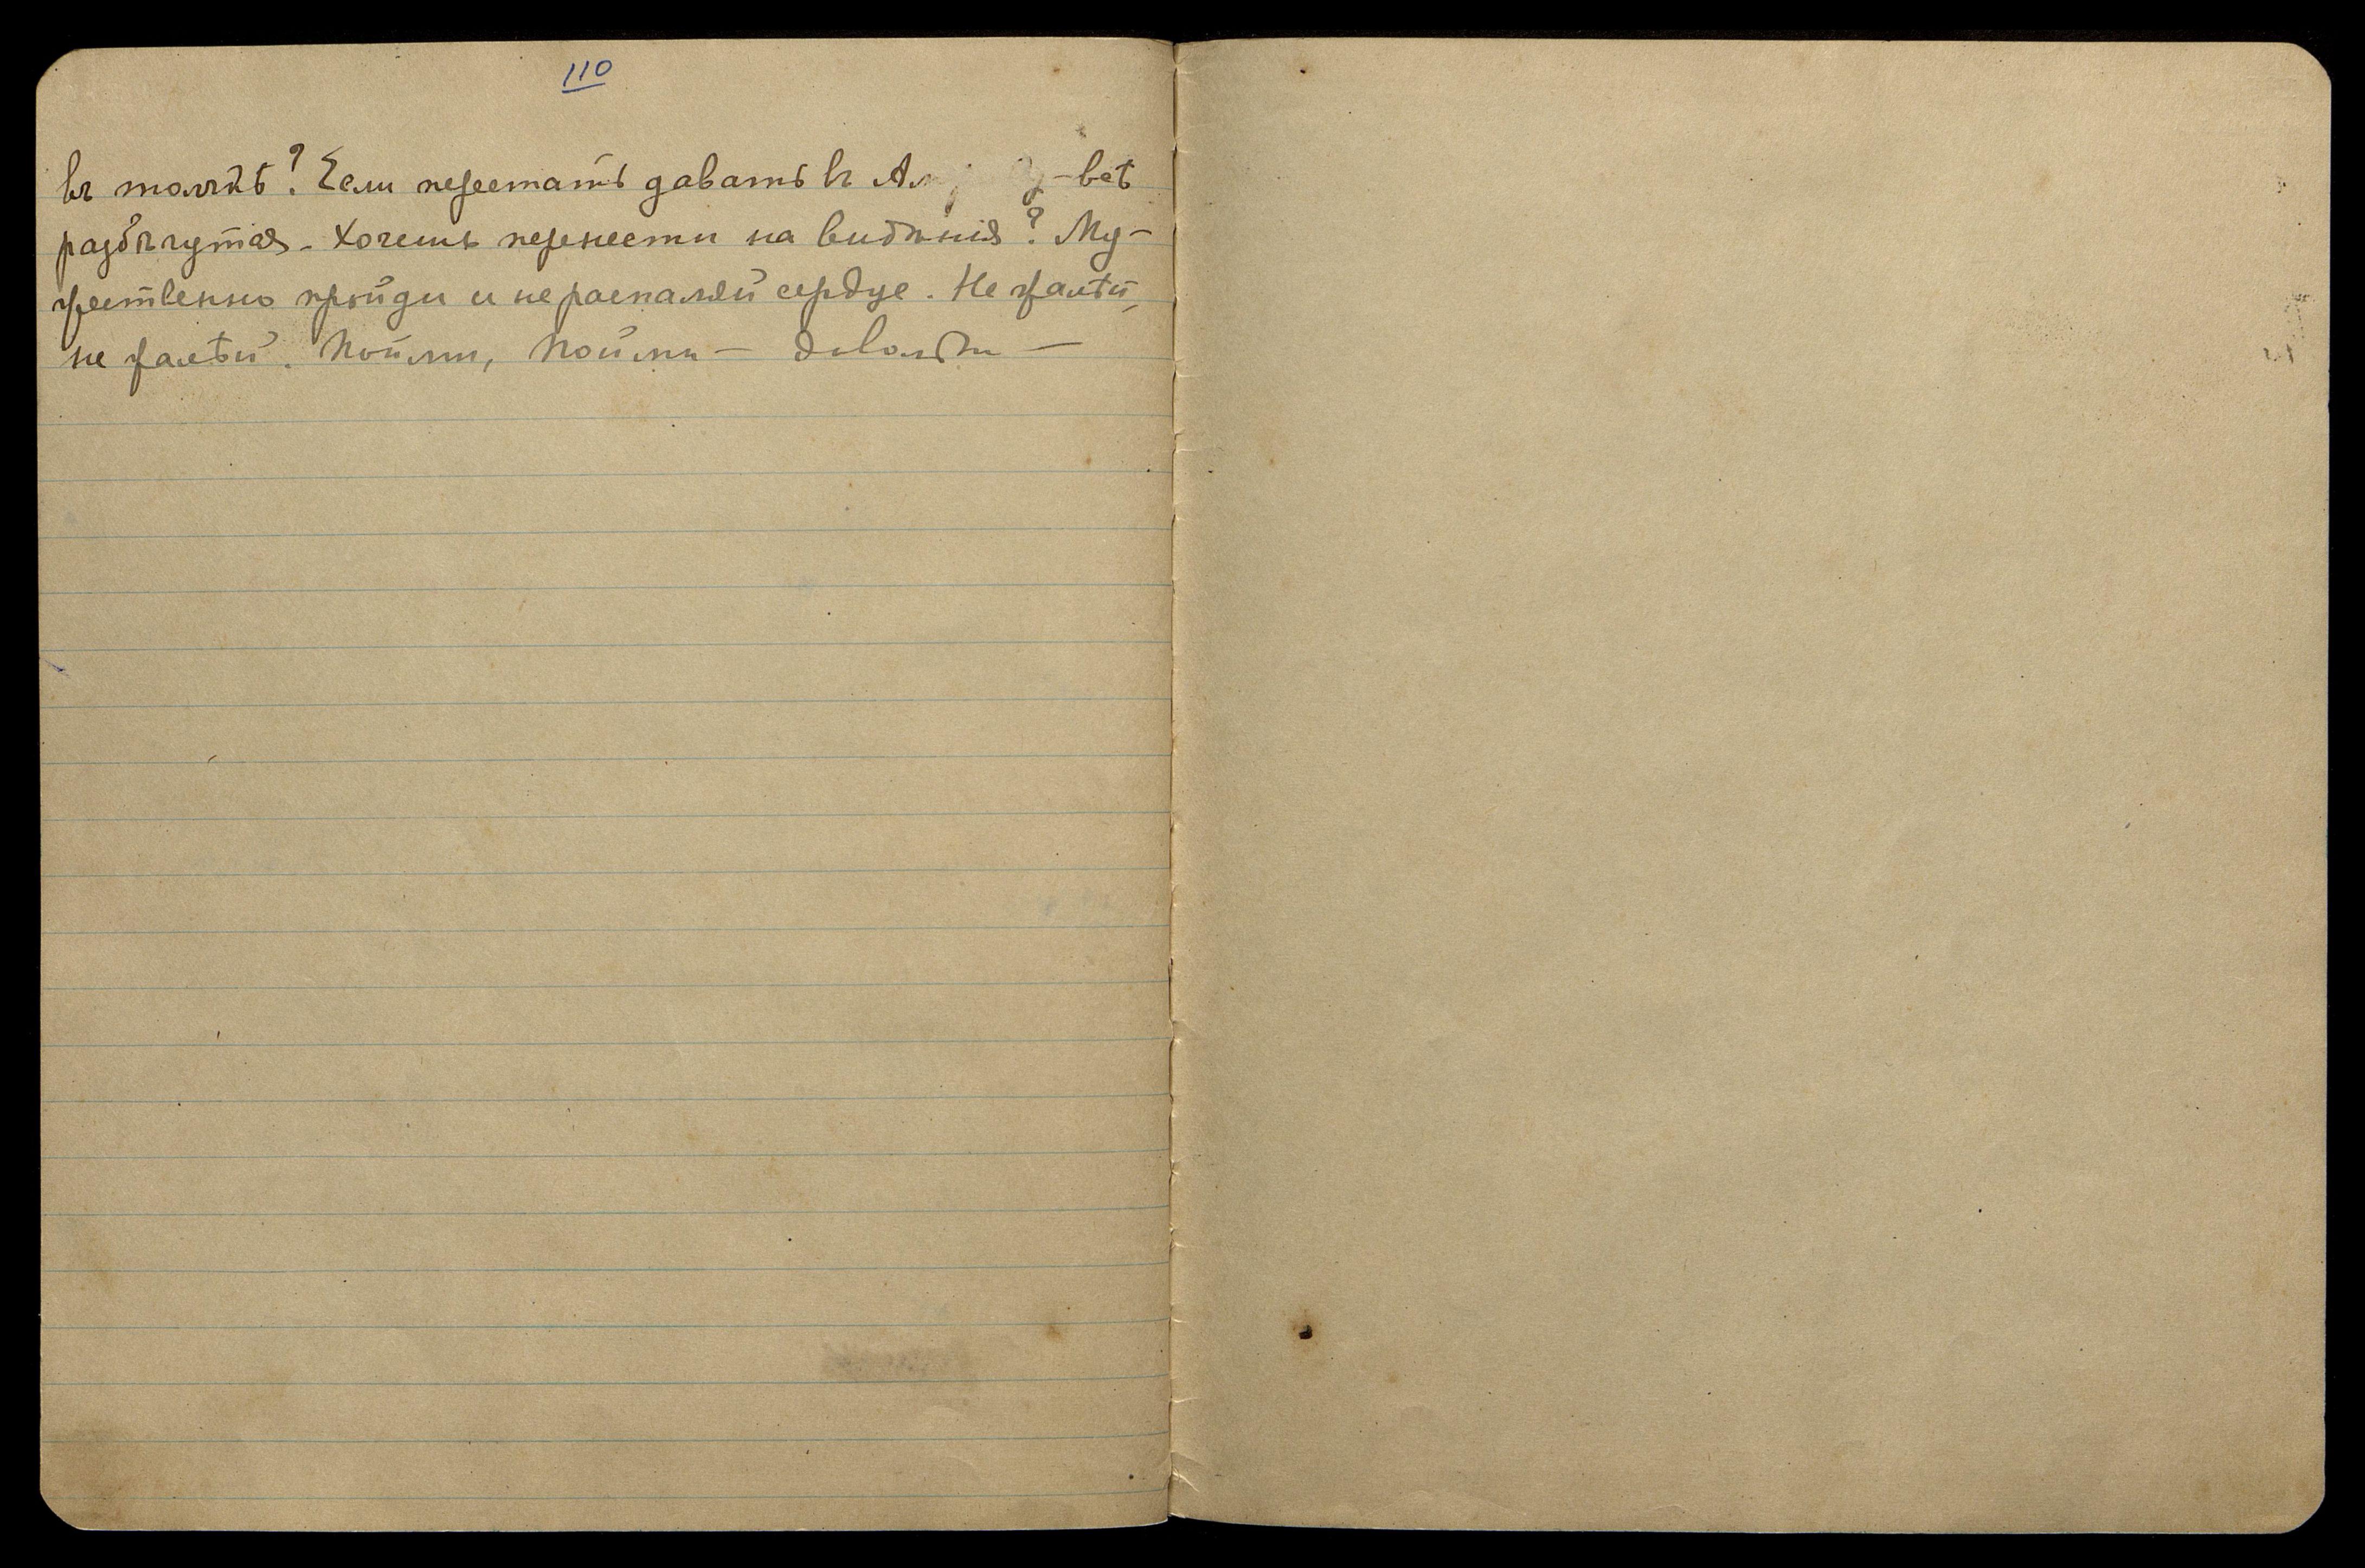 110
въ толчкѣ? Если перестать давать въ всѣ
разбѣгутся. Хочешь перенести на видѣнія? Му-
жественно пройди и не распаляй сердце. Не жалѣй,
не жалѣй. Пойми, пойми — довольно —